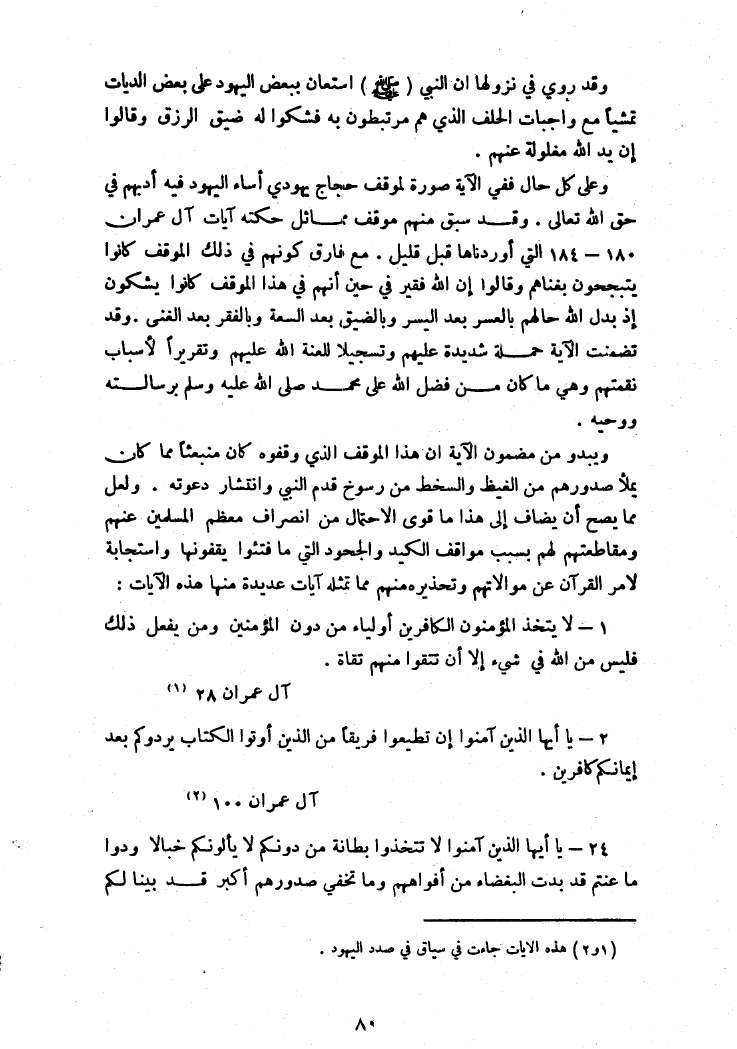 وقد روي في نزولها ان النبي ( ﷺ ) استعان ببعض اليهود على بعض الديات
تمشياً مع واجبات الحلف الذي هم مرتبطون به فشكوا له ضيق الرزق وقالوا
إن يد الله مغلولة عنهم .
وعلى كل حال ففي الآية صورة لموقف حجاج يهودي أساء اليهود فيه أدبهم في
حق الله تعالى . وقد سبق منهم موقف مماثل حكته آيات آل عمران
١٨٠ – ١٨٤ التي أوردناها قبل قليل . مع فارق كونهم في ذلك الموقف كانوا
يتبجحون بغناهم وقالوا إن الله فقير في حين أنهم في هذا الموقف كانوا يشكون
إذ بدل الله حالهم بالعسر بعد اليسر وبالضيق بعد السعة وبالفقر بعد الغنى . وقد
تضمنت الآية حملة شديدة عليهم وتسجيلا للعنة الله عليهم وتقريراً لأسباب
نقمتهم وهي ما كان من فضل الله على محمد صلى الله عليه وسلم برسالته
ووحيه .
ويبدو من مضمون الآية ان هذا الموقف الذي وقفوه كان منبعثاً مما كان
يملأ صدورهم من الغيظ والسخط من رسوخ قدم النبي وانتشار دعوته . ولعل
مما يصح أن يضاف إلى هذا ما قوى الاحتمال من انصراف معظم المسلمين عنهم
ومقاطعتهم لهم بسبب مواقف الكيد والجحود التي ما فتئوا يقفونها واستجابة
لامر القرآن عن موالاتهم وتحذيره منهم مما تمثله آيات عديدة منها هذه الآيات :
١ – لا يتخذ المؤمنون الكافرين أولياء من دون المؤمنين ومن يفعل ذلك
فليس من الله في شيء إلا أن تتقوا منهم تقاة .
آل عمران ٢٨ (١)
٢ – يا أيها الذين آمنوا إن تطيعوا فريقاً من الذين أوتوا الكتاب يردوكم بعد
إيمانكم كافرين .
آل عمران ١٠٠ (٢)
٢٤ – يا أيها الذين آمنوا لا تتخذوا بطانة من دونكم لا يألونكم خبالا ودوا
ما عنتم قد بدت البغضاء من أفواههم وما تخفي صدورهم أكبر قد بينا لكم
(١و٢) هذه الايات جاءت في سياق في صدد اليهود .